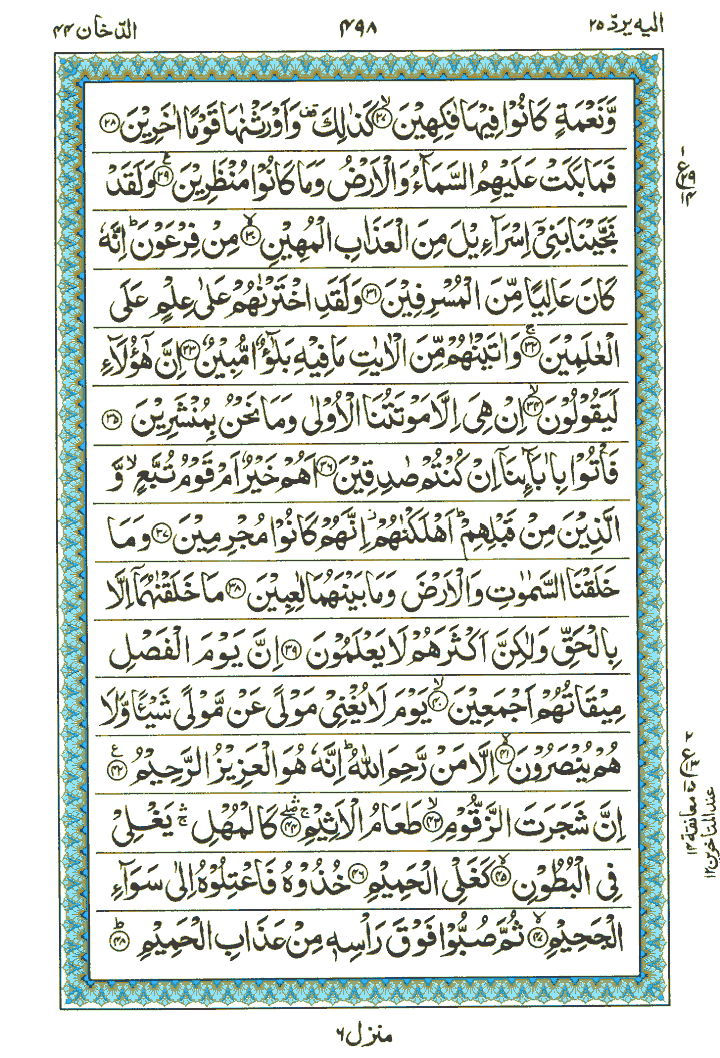 الیه یردّ ۲۵
۴۹۸
الدّخان ۴۴
وَّنَعْمَةٍ كَانُوْا فِيْهَا فٰكِهِيْنَ ۙ﴿۲۷﴾ كَذٰلِكَ ۫ وَاَوْرَثْنٰهَا قَوْمًا اٰخَرِيْنَ ﴿۲۸﴾
فَمَا بَكَتْ عَلَيْهِمُ السَّمَآءُ وَالْاَرْضُ وَمَا كَانُوْا مُنْظَرِيْنَ ﴿۲۹﴾ۧ وَلَقَدْ
نَجَّيْنَا بَنِيْٓ اِسْرَآءِيْلَ مِنَ الْعَذَابِ الْمُهِيْنِ ۙ﴿۳۰﴾ مِنْ فِرْعَوْنَ ؕ اِنَّهٗ
كَانَ عَالِيًا مِّنَ الْمُسْرِفِيْنَ ﴿۳۱﴾ وَلَقَدِ اخْتَرْنٰهُمْ عَلٰى عِلْمٍ عَلَى
الْعٰلَمِيْنَ ۚ﴿۳۲﴾ وَاٰتَيْنٰهُمْ مِّنَ الْاٰيٰتِ مَا فِيْهِ بَلٰٓؤٌا مُّبِيْنٌ ﴿۳۳﴾ اِنَّ هٰٓؤُلَآءِ
لَيَقُوْلُوْنَ ۙ﴿۳۴﴾ اِنْ هِيَ اِلَّا مَوْتَتُنَا الْاُوْلٰى وَمَا نَحْنُ بِمُنْشَرِيْنَ ﴿۳۵﴾
فَاْتُوْا بِاٰبَآئِنَاۤ اِنْ كُنْتُمْ صٰدِقِيْنَ ﴿۳۶﴾ اَهُمْ خَيْرٌ اَمْ قَوْمُ تُبَّعٍ ۙ وَّ
الَّذِيْنَ مِنْ قَبْلِهِمْ ؕ اَهْلَكْنٰهُمْ ۫ اِنَّهُمْ كَانُوْا مُجْرِمِيْنَ ﴿۳۷﴾ وَمَا
خَلَقْنَا السَّمٰوٰتِ وَالْاَرْضَ وَمَا بَيْنَهُمَا لٰعِبِيْنَ ﴿۳۸﴾ مَا خَلَقْنٰهُمَاۤ اِلَّا
بِالْحَقِّ وَلٰكِنَّ اَكْثَرَهُمْ لَا يَعْلَمُوْنَ ﴿۳۹﴾ اِنَّ يَوْمَ الْفَصْلِ
مِيْقَاتُهُمْ اَجْمَعِيْنَ ۙ﴿۴۰﴾ يَوْمَ لَا يُغْنِيْ مَوْلًى عَنْ مَّوْلًى شَيْـًٔا وَّلَا
هُمْ يُنْصَرُوْنَ ۙ﴿۴۱﴾ اِلَّا مَنْ رَّحِمَ اللّٰهُ ؕ اِنَّهٗ هُوَ الْعَزِيْزُ الرَّحِيْمُ ﴿۴۲﴾ۧ
اِنَّ شَجَرَتَ الزَّقُّوْمِ ۙ﴿۴۳﴾ طَعَامُ الْاَثِيْمِ ۛۚ﴿۴۴﴾ كَالْمُهْلِ ۛۚ يَغْلِيْ
فِي الْبُطُوْنِ ۙ﴿۴۵﴾ كَغَلْيِ الْحَمِيْمِ ﴿۴۶﴾ خُذُوْهُ فَاعْتِلُوْهُ اِلٰى سَوَآءِ
الْجَحِيْمِ ۙ﴿۴۷﴾ ثُمَّ صُبُّوْا فَوْقَ رَاْسِهٖ مِنْ عَذَابِ الْحَمِيْمِ ؕ﴿۴۸﴾
معانقة ۱۴
عند المتاخرین ۱۲
منزل ۶